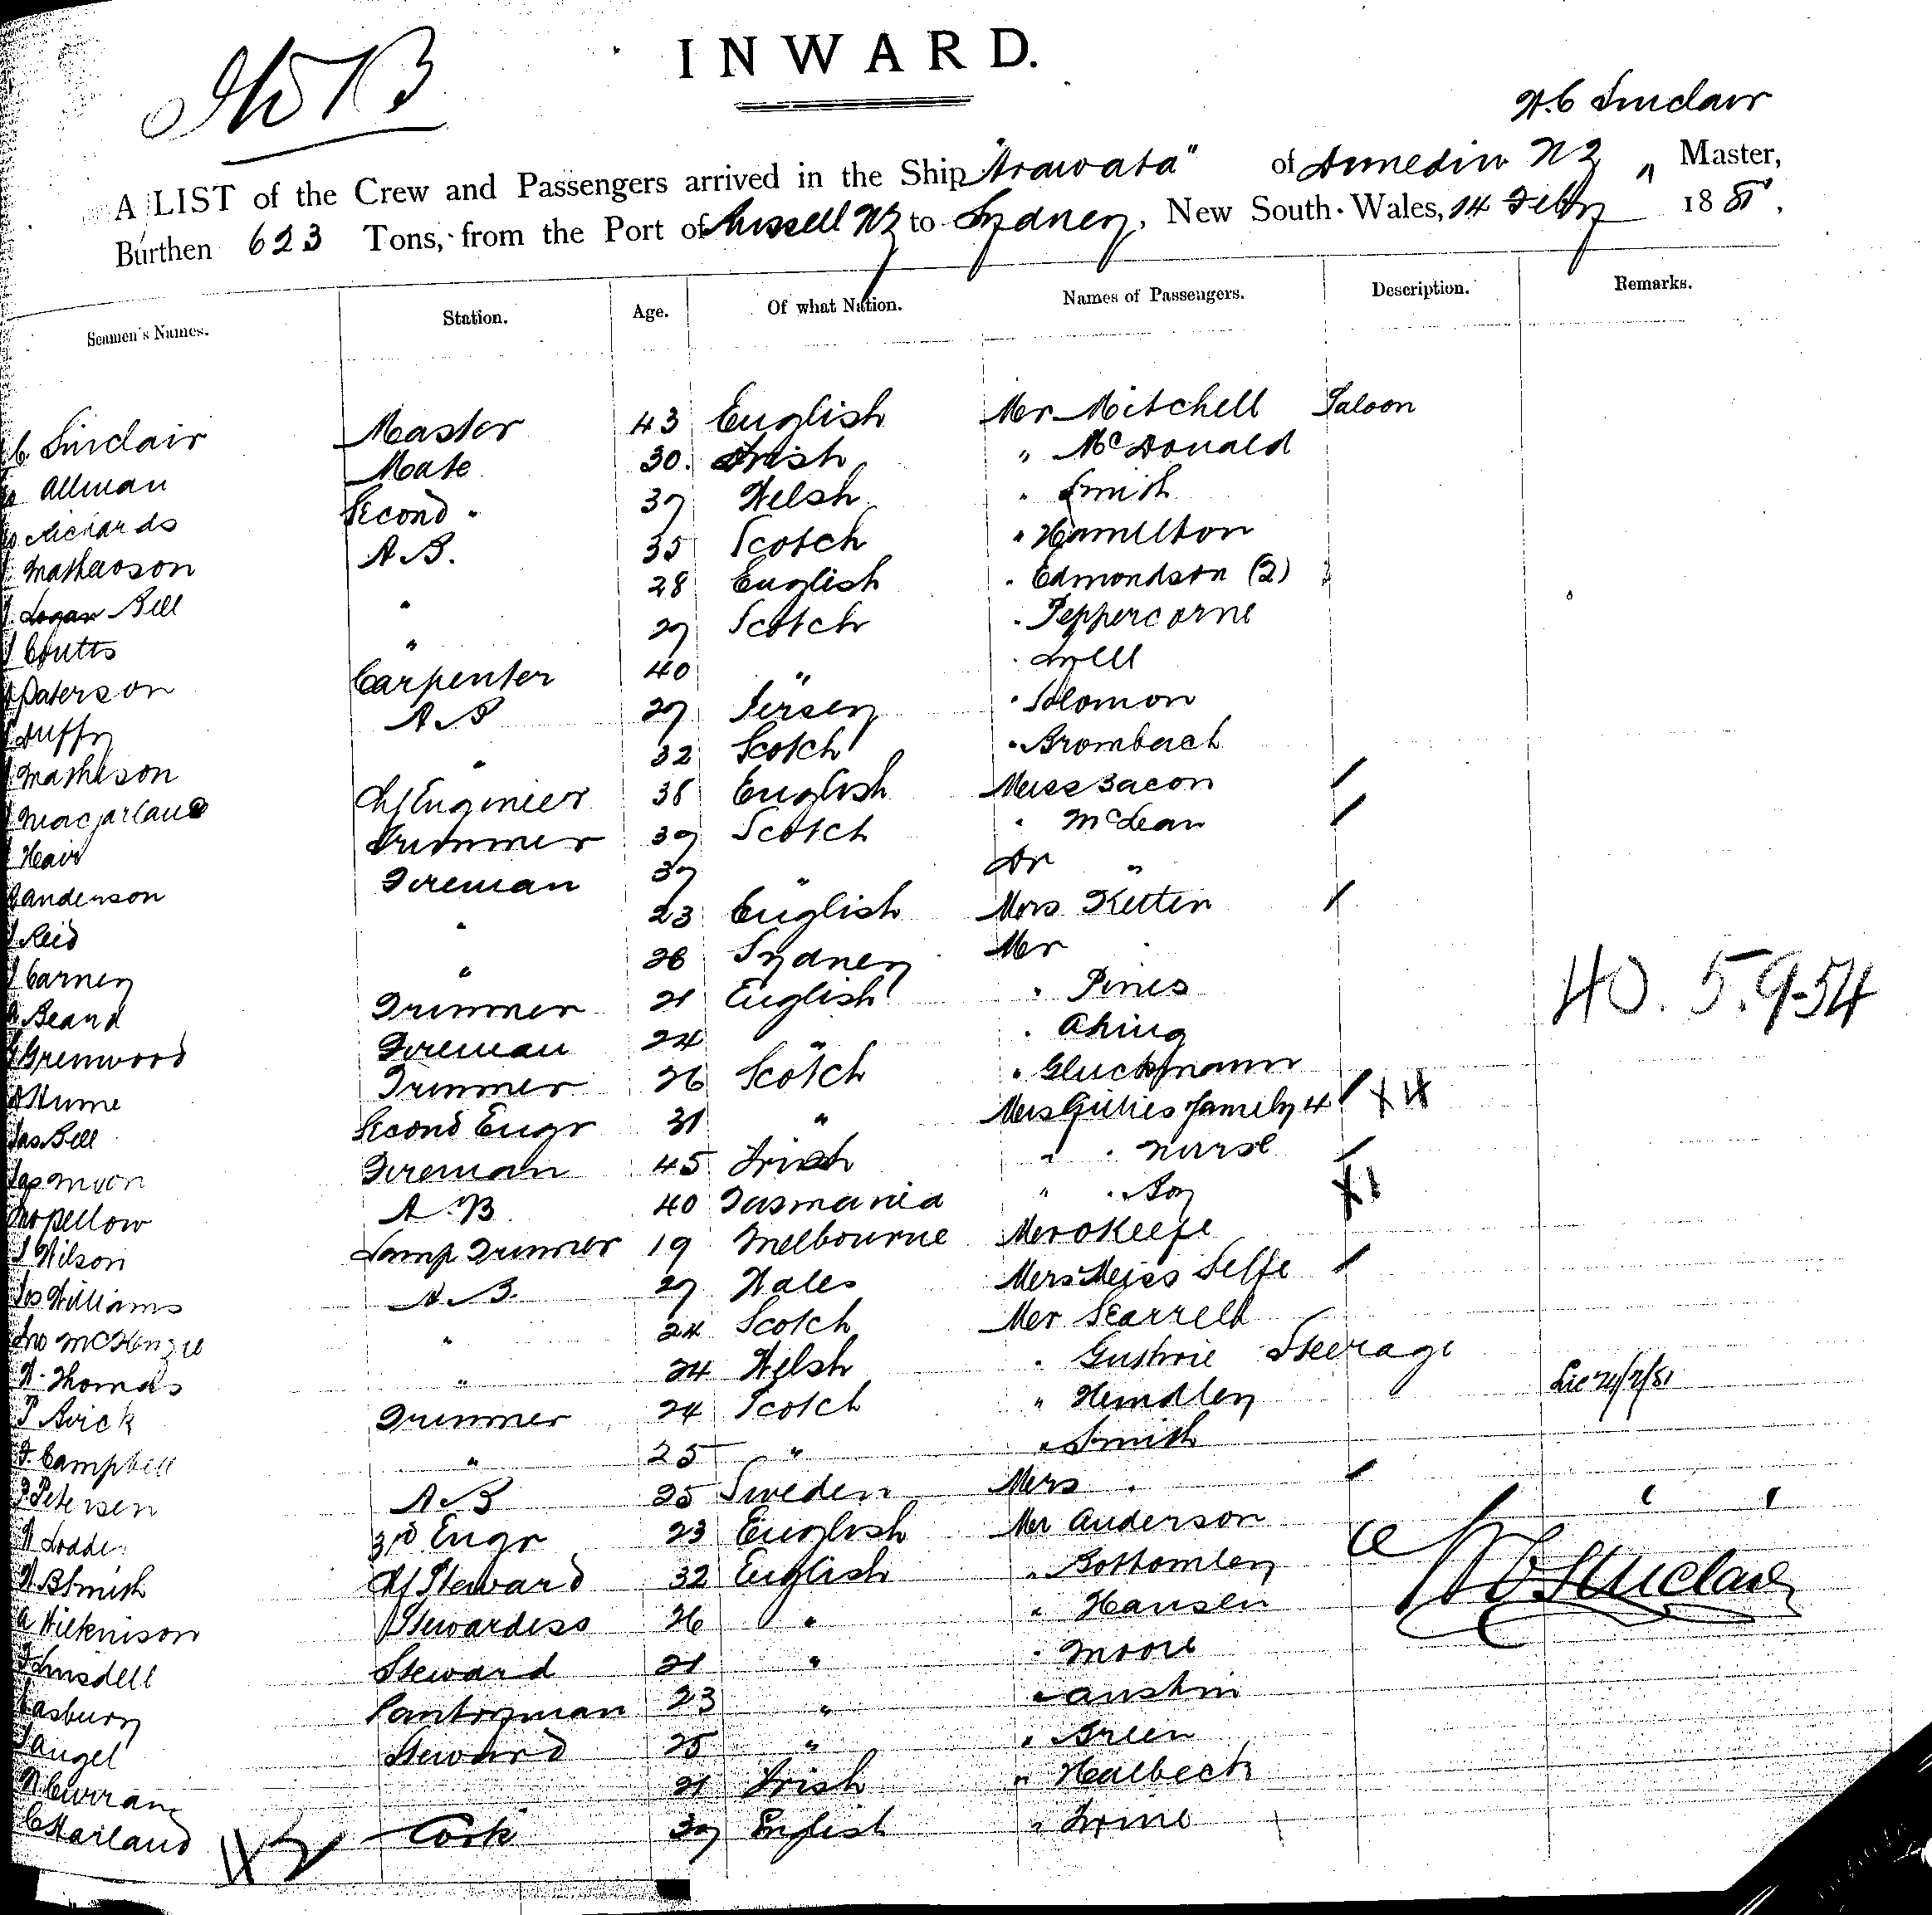 INWARD.
W.C Sinclair
A LIST of the Crew and Passengers arrived in the Ship "Arawata" of Dunedin NZ " Master,
Burthen 623 Tons, from the Port of Russell NZ to Sydney, New South Wales, 14 Feby 1881.
Seamen's Names. Station. Age. Of what Nation. Names of Passengers. Description. Remarks.
C. Sinclair Master 43 English Mr Mitchell Saloon
Allman Mate 30. Irish " McDonald
Richards Second " 37 Welsh " Smith
Matheson A.B. 35 Scotch " Hamilton
Logan Bell " 28 English " Edmondson (2)
Coutts " 27 Scotch " Peppercorne
Paterson Carpenter 40 " " Lyell
Duffy A.B 27 Jersey " Solomon
Matheson " 32 Scotch " Brombach
Macfarlane Chf Engineer 38 English Miss Bacon /
Hair Trimmer 37 Scotch " McLean /
Anderson Fireman 37 " Dr "
Reid " 23 English Mrs Ketten /
Carney " 26 Sydney Mr "
Beard Trimmer 21 English " Pines
Grenwood Fireman 24 " " Ahing
Hume Trimmer 26 Scotch " Gluckmann
Jas Bell Second Engr 31 " Mrs Gillies family 4 / X4
Jas Moon Fireman 45 Irish " " Nurse /
Jno Pellow A.B 40 Tasmania " " Boy X1
J Wilson Lamp Trimmer 19 Melbourne Mr OKeefe
Jos Williams A.B. 27 Wales Mrs Miss Selfe /
Jno McKenzie " 24 Scotch Mr Searrell
W. Thomas " 24 Welsh " Guthrie Steerage
P Avick Trimmer 24 Scotch " Hendley
F. Campbell " 25 " " Smith
P. Petersen A.B 25 Sweden Mrs " /
W Lodder 3rd Engr 23 English Mr Anderson
W B Smith Chf Steward 32 English " Bottomley
A Wilkinson Stewardess 26 " " Hansen
Linsdell Steward 21 " " Moore
Casbury Pantryman 23 " " Austin
J Angel Steward 25 " " Breen
W Curran 21 Irish " Halbeck
C Harland Cook 37 English " Irvine
40. 5.9-54
W C Sinclair